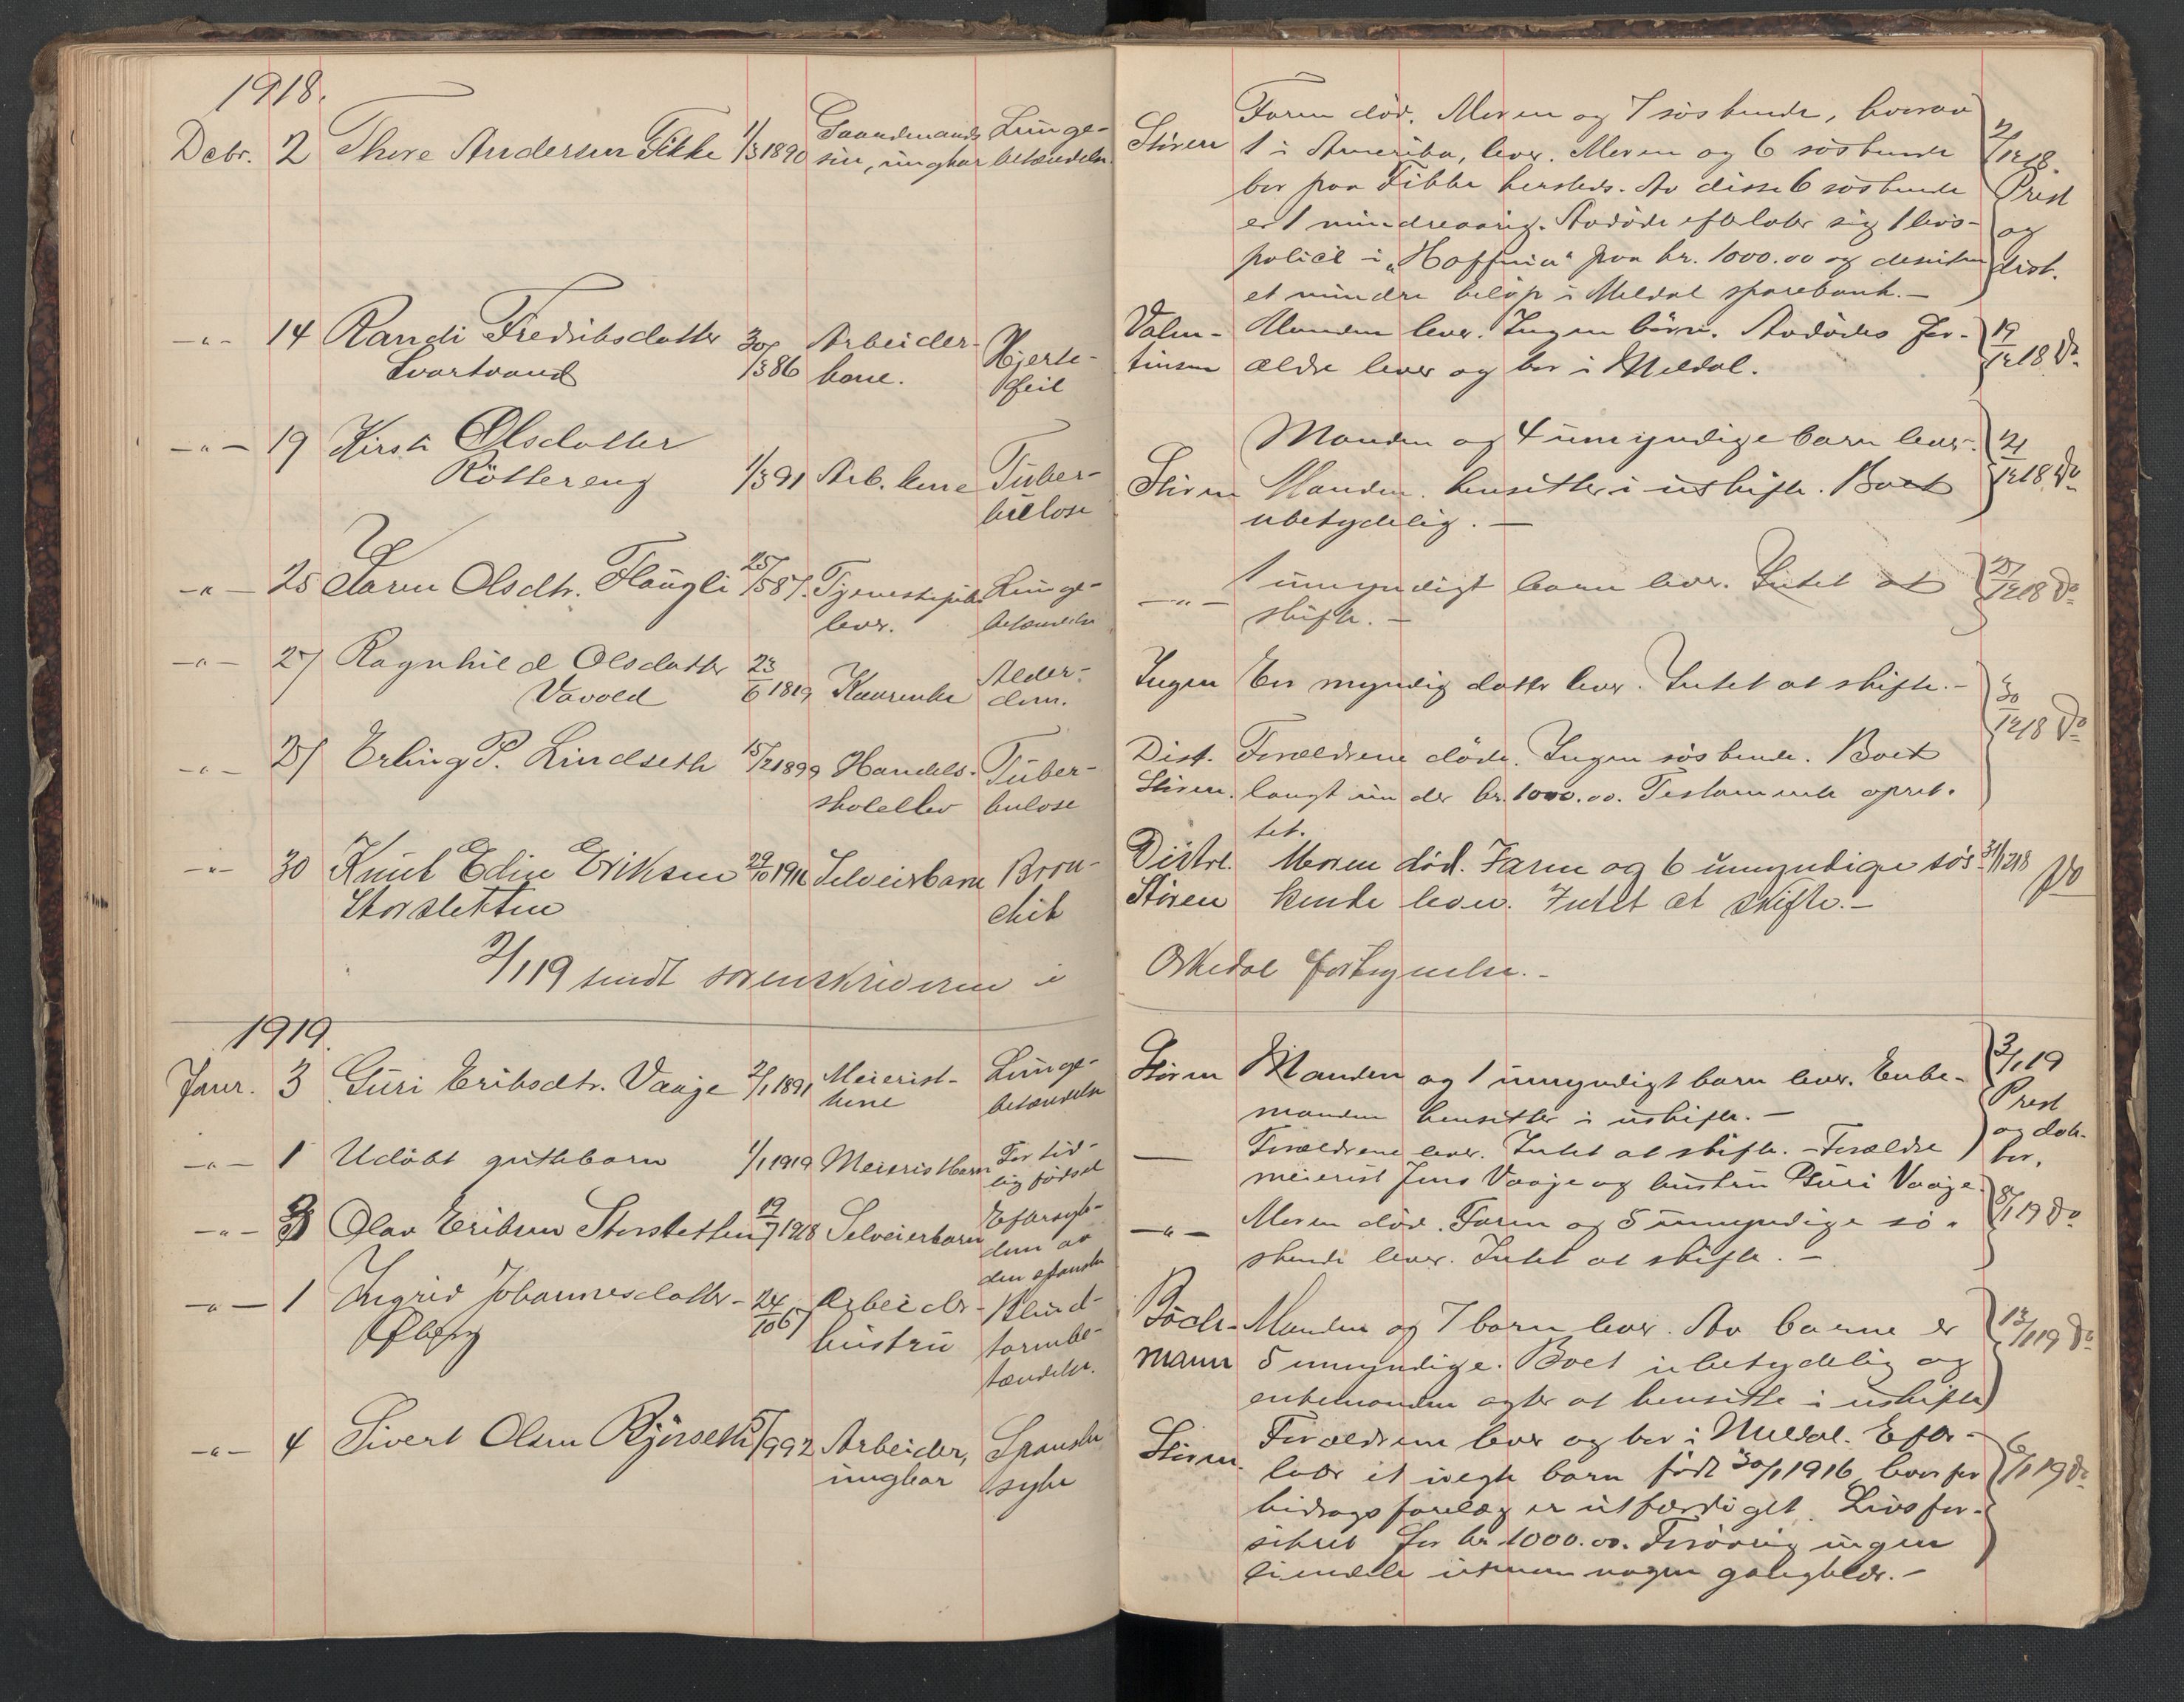 1918.
Debr. 2 Thore Andersen Fikke 1/3 1890 Gaardmands Lunge-
søn, ungkar betændelse
Støren
Faren død. Moren og 7 søskende, hvorav
1 i Amerika, lever. Moren og 6 søskende
bor paa Fikke hersteds. Av disse 6 søskende
er 1 mindreaarig. Avdøde efterlater sig 1 livs-
police i "Haffnia" paa kr. 1000.00 og desuten
et mindre beløp i Meldal sparebank. —
2/12 18.
Prest
og
dist.
-"- 14 Randi Fredriksdatter 30/3 86 Arbeider- Hjerte-
Svartvand kone. feil
Valen- Manden lever. Ingen børn. Avdødes for-
tinsen ældre lever og bor i Meldal.
19/12 18 Do
-"- 19 Kirsti Olsdatter
Røttereng 1/3 91 Arb. kone Tuber-
kulose
Manden og 4 umyndige barn lever.
Støren Manden hensitter i uskifte. Boet
ubetydelig. —
21/12 18 Do
-"- 25 Karen Olsdtr. Flaugli 25/5 87. Tjenestepike Lunge-
lever. betændelse
-"- 1 umyndigt barn lever. Intet at
skifte. —
27/12 18 Do
-"- 27 Ragnhild Olsdatter 23/6 1819 Kaarenke Alder-
Vavold dom.
Ingen En myndig datter lever. Intet at skifte. —
30/12 18 Do
-"- 27 Erling P. Lindseth 15/2 1899 Handels- Tuber-
skoleelev kulose
Dist. Forældrene døde. Ingen søskende. Boet
Støren. langt under kr. 1000.00. Testamente opret-
tet.
-"- 30 Knut Edin Eriksen 29/10 1912 Selveierbarn Bron-
Storsletten chit
Distrl. Moren død. Faren og 6 umyndige søs- 31/12 18
Støren kende lever. Intet at skifte. — Do
2/1 19 sendt sorenskriveren i
Orkedal fortegnelse. —
1919.
Janr. 3 Guri Eriksdtr. Vaaje 2/1 1891 Meierist- Lunge-
kone betændelse
Støren Manden og 1 umyndigt barn lever. Enke-
manden hensitter i uskifte. —
3/1 19
Prest
og dok-
tor.
-"- 1 Udøbt guttebarn 1/1 1919 Meieristbarn For tid-
lig fødsel
— Forældrene lever. Intet at skifte. — Forældre
meierist Jens Vaaje og hustru Guri Vaaje.
-"- 3 Olav Eriksen Storsletten 19/7 1918 Selveierbarn Eftersyk-
dom av
den spanske
-"- Moren død. Faren og 5 umyndige sø-
skende lever. Intet at skifte. —
8/1 19 Do
-"- 1 Ingrid Johannesdatter 24/10 67 Arbeider- Blind-
Øfberg hustru tarmbe-
tændelse.
Bach- Manden og 7 barn lever. Av barna er
mann 5 umyndige. Boet ubetydelig og
enkemanden agter at hensitte i uskifte
13/1 19 Do
-"- 4 Sivert Olsen Bjørseth 5/9 92 Arbeider, Spanske
ungkar syke
Støren. Forældrene lever og bor i Meldal. Efter-
later et uegte barn født 30/1 1916, hvorfor
bidragsforelæg er utfærdiget. Livsfor-
sikret for kr 1000.00. Forøvrig ingen
eiendele utenom nogen gangklær. —
6/1 19 Do